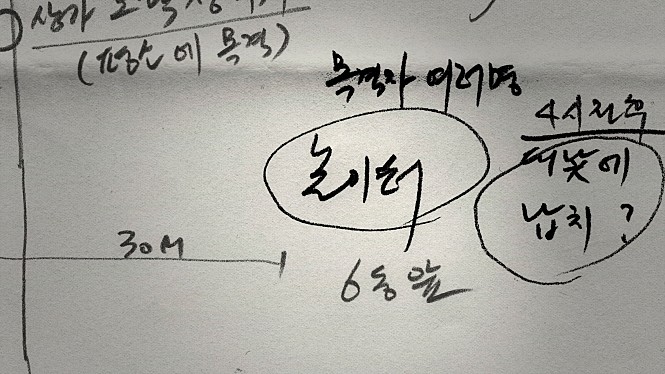 상가
(평소에 목격)
목격자 여러명
4시전후
놀이터
대낮에
납치?
30M
6동앞